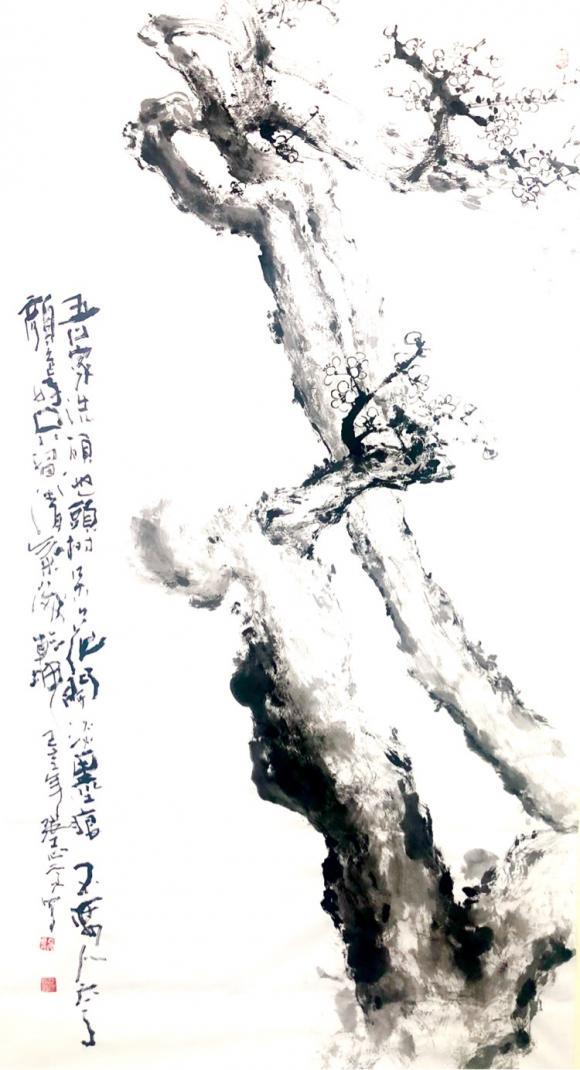 吾家洗硯池頭树朵々花開淡墨痕不要人誇
顏色好只留清氣滿乾坤
年張